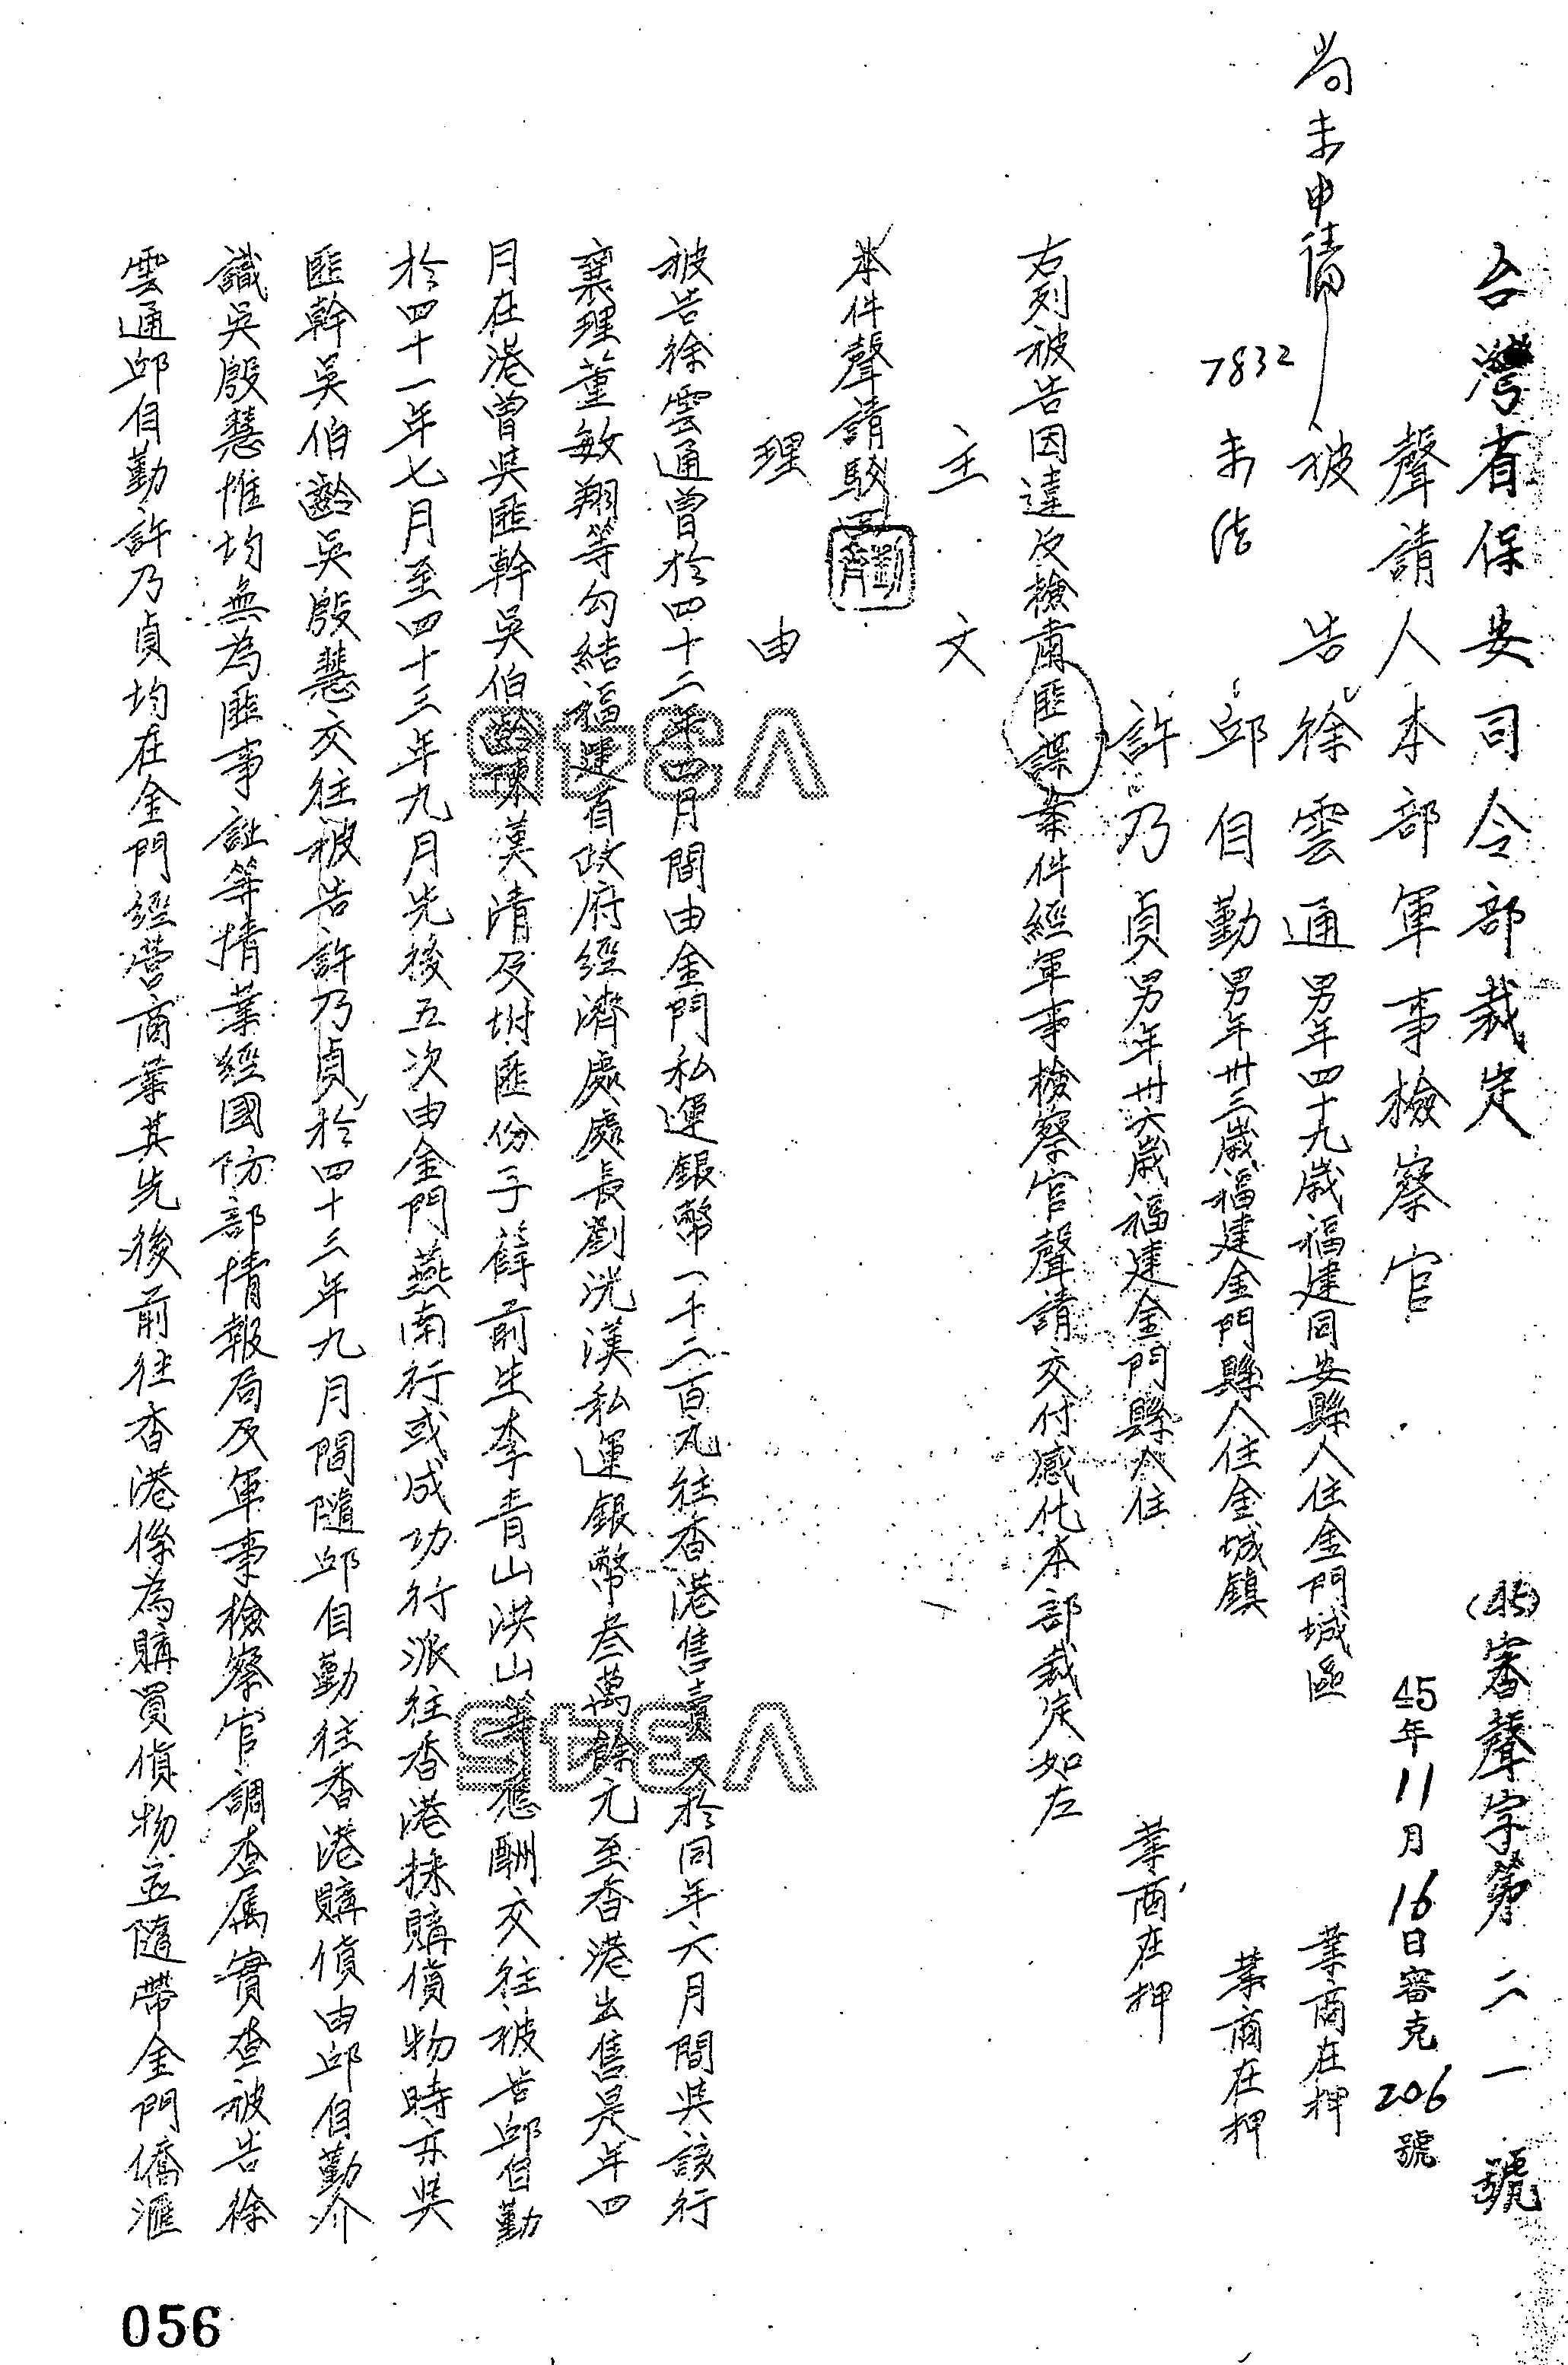 台灣省保安司令部裁定
(45)審聲字第二一號
聲請人本部軍事檢察官
45年11月16日審克206號
尚未申請
被告徐雲通男年四十九歲福建同安縣人住金門城區
業商在押
7832
未結
邱自勤男年卅三歲福建金門縣人住金城鎮
業商在押
許乃貞男年卅六歲福建金門縣人住
業商在押
右列被告因違反檢肅匪諜案件經軍事檢察官聲請交付感化本部裁定如左
主文
本件聲請駁回
理由
被告徐雲通曾於四十二年四月間由金門私運銀幣一千二百元往香港售賣又於同年六月間與該行
襄理董敏翔等勾結福建省政府經濟處處長劉洸漢私運銀幣叁萬餘元至香港出售是年四
月在港曾與匪幹吳伯齡陳漢清及附匪份子薛前生李青山洪山等應酬交往被告邱自勤
於四十一年七月至四十三年九月先後五次由金門燕南行或成功行派往香港採購貨物時亦與
匪幹吳伯齡吳殷慧交往被告許乃貞於四十三年九月間隨邱自勤往香港購貨由邱自勤介
識吳殷慧惟均無為匪事証等情業經國防部情報局及軍事檢察官調查屬實查被告徐
雲通邱自勤許乃貞均在金門經營商業其先後前往香港係為購買貨物並隨帶金門僑滙
V345
V345
056